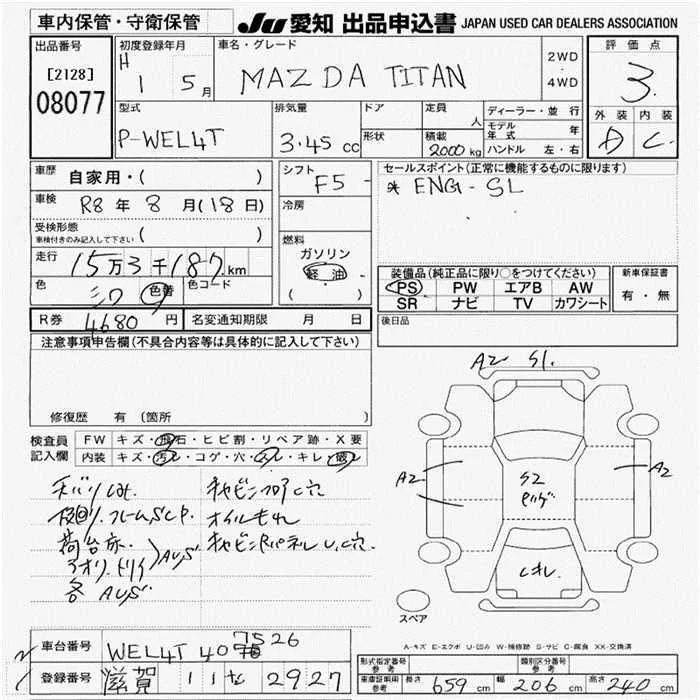 車内保管・守衛保管
JU 愛知 出品申込書 JAPAN USED CAR DEALERS ASSOCIATION
出品番号
[2128]
08077
初度登録年月
H 1 5 月
車名・グレード
MAZDA TITAN
2WD
・
4WD
評価点
3
外装 内装
D C
型式
P-WEL4T
排気量
3.45 cc
ドア
形状
定員
人
積載
2000 kg
ディーラー・並行
モデル年式 年
ハンドル 左・右
車歴
自家用・( )
車検
R8 年 8 月(18日)
受検形態
車検付きのみ記入して下さい ( )
走行
15万3千187km
色
色替
色コード
シフト
F5
冷房
燃料
ガソリン
軽油
( )
セールスポイント(正常に機能するものに限ります)
* ENG-SL
装備品(純正品に限り○をつけてください)
PS PW エアB AW
SR ナビ TV カワシート
新車保証書
有・無
R券 4680 円 名変通知期限 月 日
後日品
注意事項申告欄(不具合内容等は具体的に記入して下さい)
修復歴 有 (箇所
検査員
記入欄
FW キズ・飛石・ヒビ割・リペア跡・X要
内装 キズ・汚レ・コゲ・穴・スレ・キレ・破レ
キャビンフロアC穴
下回り.フレームS,C,P. オイルもれ
荷台床
アオリ.トリイ
AUS
各 AUS
A2 S1.
A2
A2
S2
スペア
A-キズ E-エクボ U-凹み W-補修跡 S-サビ C-腐食 XX-交換済
車台番号 WEL4T 407526
登録番号 滋賀 11 2927
形式指定番号
参考
類別区分番号
参考
車庫証明用
参考
長さ 659 cm 幅 206 cm 高さ 240 cm